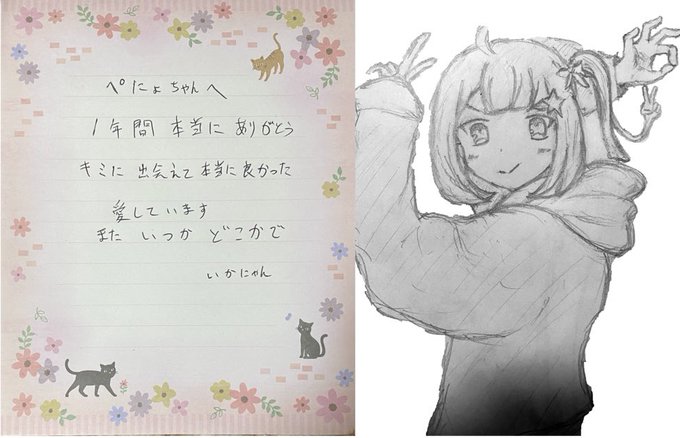 ぺにょちゃんへ
1年間 本当に ありがとう
キミに 出会えて 本当に良かった
愛しています
また いつか どこかで
いかにゃん